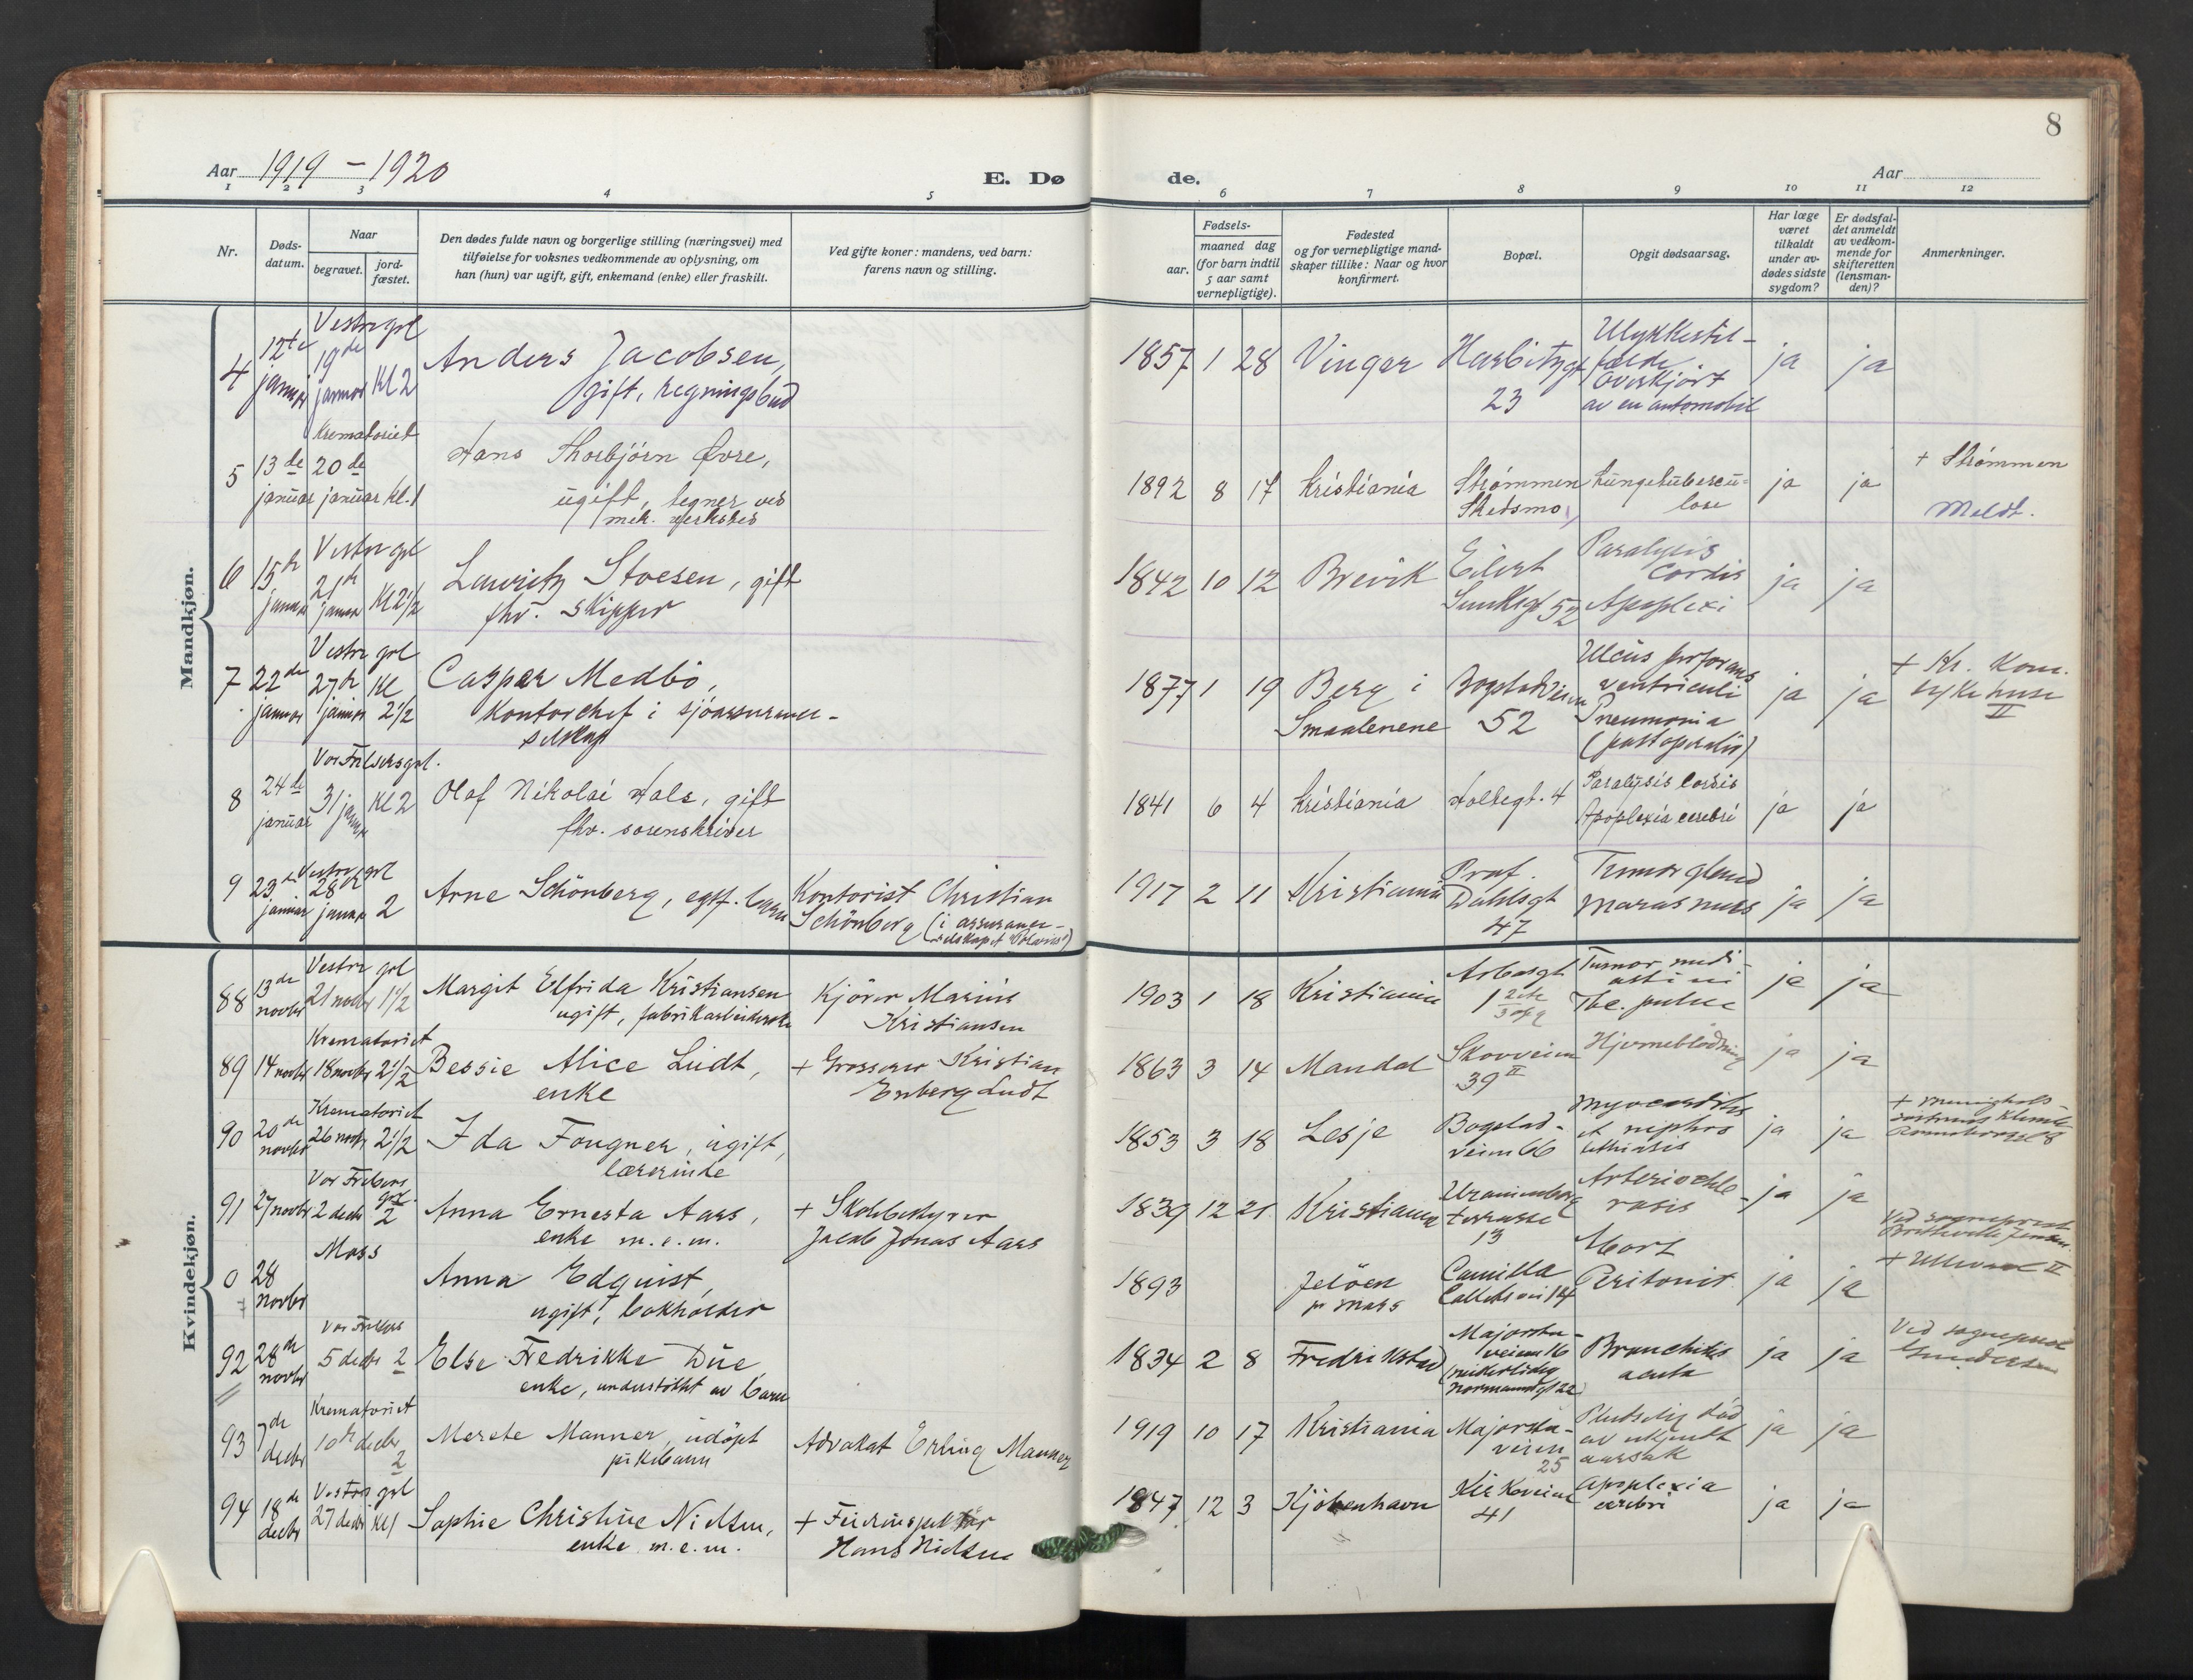 8
Aar 1919 - 1920
E. Dø
de.
Aar
1 2 3 4 5 6 7 8 9 10 11 12
Nr.
Døds-
datum.
Naar
begravet.
jord-
fæstet.
Den dødes fulde navn og borgerlige stilling (næringsvei) med
tilføielse for voksnes vedkommende av oplysning, om
han (hun) var ugift, gift, enkemand (enke) eller fraskilt.
Ved gifte koner: mandens, ved barn:
farens navn og stilling.
Fødsels-
aar.
maaned dag
(for barn indtil
5 aar samt
vernepligtige).
Fødested
og for vernepligtige mand-
skaper tillike: Naar og hvor
konfirmert.
Bopæl.
Opgit dødsaarsag.
Har læge
været
tilkaldt
under av-
dødes sidste
sygdom?
Er dødsfal-
det anmeldt
av vedkom-
mende for
skifteretten
(lensman-
den)?
Anmerkninger.
Mandkjøn.
4
12te
januar
Vestre grl
19de
januar
Kl 2
Anders Jacobsen,
gift, regningsbud
1857 1 28
Vinger
Harbitzgt
23
Ulykkestil-
fælde.
Overkjørt
av en automobil
ja ja
5
13de
januar
Krematoriet
20de
januar
Kl. 1
Hans Thorbjörn Øvre,
ugift, tegner ved
mek. verksted
1892 8 17
Kristiania
Strømmen
Skedsmo
Lungetubercu-
lose
ja ja
+ Strømmen
Meldt.
6
15de
januar
Vestre grl
21de
januar
Kl 2 1/2
Lauritz Stoesen, gift
fhv. skipper
1842 10 12
Brevik
Eilert
Sundtsgt 52
Paralysis
Cordis
Apoplexi
ja ja
7
22de
januar
Vestre grl
27de
januar
Kl
2 1/2
Casper Medbö,
Kontorchef i sjöassurance-
selskap
1877 1 19
Berg i
Smaalenene
Bogstadveien
52
Ulcus perforans
ventriculi
Pneumonia
(postoperativ)
ja ja
+ Kr. Kom.
sykehuse
II
8
24de
januar
Vor Frelsers grl.
31 januar
Kl 2
Olaf Nikolai Hals, gift
fhv. sorenskriver
1841 6 4
Kristiania
Holtegt. 4
Paralysis Cordis
Apoplexia cerebri
ja ja
9
23de
januar
Vestre grl
28de
januar
2
Arne Schönberg, egtf. barn
Kontorist Christian
Schönberg (i assurance-
selskapet "Polaris")
1917 2 11
Kristiania
Prof.
Dahlsgt
47
Tumor gland
marasmus
ja ja
Kvindekjøn.
88
13de
novbr
Vestre grl
21 novbr
1 1/2
Margit Elfrida Kristiansen
ugift, fabrikarbeiderske
Kjörer Marius
Kristiansen
1903 1 18
Kristiania
Arbosgt
1
Tumor medi-
astini
Tbc. pulm
ja ja
89
14 novbr
Krematoriet
18 novbr
2 1/2
Bessie Alice Lüdt,
enke
+ Grosserer Kristian
Enberg Ludt
1863 3 14
Mandal
Skovveien
39 II
Hjerneblödning
ja ja
90
20de
novbr
Krematoriet
26 novbr
2 1/2
Ida Fougner, ugift,
lærerinde
1853 3 18
Lesje
Bogstad-
veien 66
Myocarditis
et nephro
lithiasis
ja ja
91
27 novbr
Vor Frelsers
grl.
2 decbr
2
Anna Ernesta Aars,
enke m.e.m.
+ Skolebestyrer
Jacob Jonas Aars
1839 12 21
Kristiania
Uranienborg
terrasse
13
Arterioscle-
rosis
ja ja
0
28
novbr
Moss
Anna Edquist,
ugift, bokholder
1893
Jelöen
pr Moss
Camilla
Collets vei 14
Abort
Peritonit.
ja ja
Ved sogneprest
+ Ullevaal II
92
28de
novbr
Vor Frelsers
5 decbr
2
Else Fredrikke Düe
enke, understöttet av barn
1834 2 8
Fredrikstad
Majorstu-
veien 16
(midlertidig
Normannsgt 22)
Bronchitis
acuta
ja ja
Ved sogneprest
Gundersen
93
7de
decbr
Krematoriet
10de decbr
2
Merete Manner, udöpt
pikebarn
Advokat Erling Manner
1919 10 17
Kristiania
Majorstu-
veien
25
Plutselig död
av ukjendt
aarsak
ja ja
94
18de
decbr
Vestre grl
27 decbr
Kl 1
Sophie Christine Nielsen,
enke m.e.m.
+ Feierinspektör
Hans Nielsen
1847 12 3
Kjöbenhavn
Kirkeveien
41
Apoplexia
cerebri
ja ja